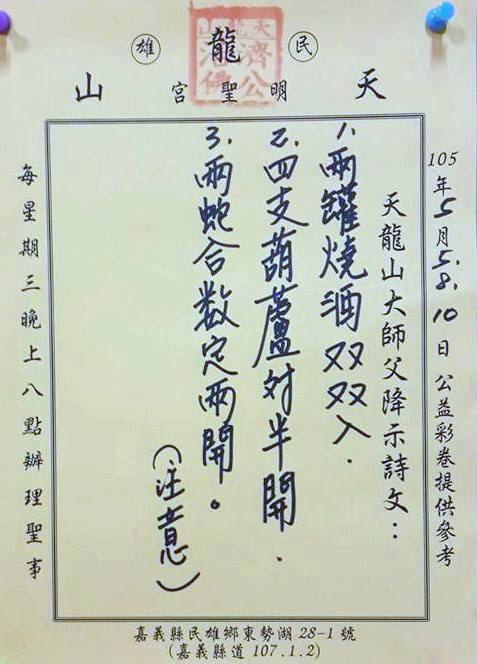 民 龍 雄
天 明聖宮 山
天龍山
濟公
活佛
105年5月5.8.10日 公益彩卷提供參考
天龍山大師父降示詩文：
1.兩罐燒酒双双入.
2.四支葫蘆对半開.
3.兩蛇合数定兩開。
(注意)
每星期三晚上八點辦理聖事
嘉義縣民雄鄉東勢湖 28-1 號
(嘉義縣道 107.1.2)